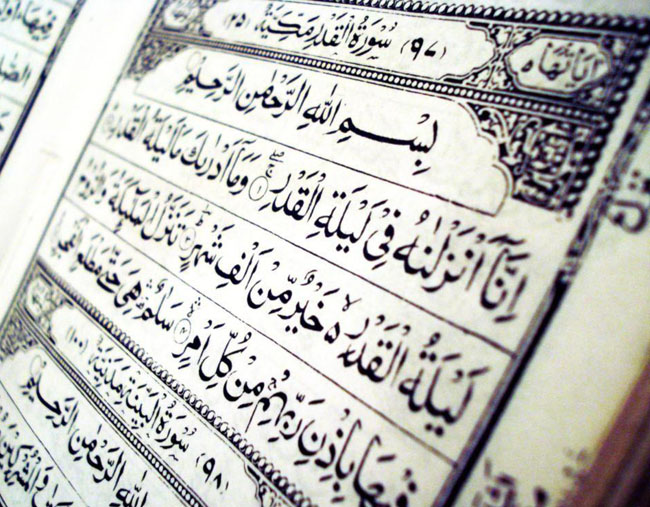 اٰيَاتُهَا ٥ (٩٧) سُوْرَةُ الْقَدْرِ مَكِّيَّةٌ (٢٥)
بِسْمِ اللّٰهِ الرَّحْمٰنِ الرَّحِيْمِ
اِنَّاۤ اَنْزَلْنٰهُ فِيْ لَيْلَةِ الْقَدْرِ ١ وَمَاۤ اَدْرٰىكَ مَا لَيْلَةُ الْقَدْرِ
لَيْلَةُ الْقَدْرِ ٥ خَيْرٌ مِّنْ اَلْفِ شَهْرٍ تَنَزَّلُ الْمَلٰٓئِكَةُ وَالرُّوْحُ
فِيْهَا بِاِذْنِ رَبِّهِمْ مِّنْ كُلِّ اَمْرٍ سَلٰمٌ هِيَ حَتّٰى مَطْلَعِ الْفَجْرِ
(٩٨) سُوْرَةُ الْبَيِّنَةِ مَدَنِيَّةٌ (١٠٠)
اللّٰهِ الرَّحْمٰنِ الرَّحِيْمِ
وَالْمُشْرِكِيْنَ